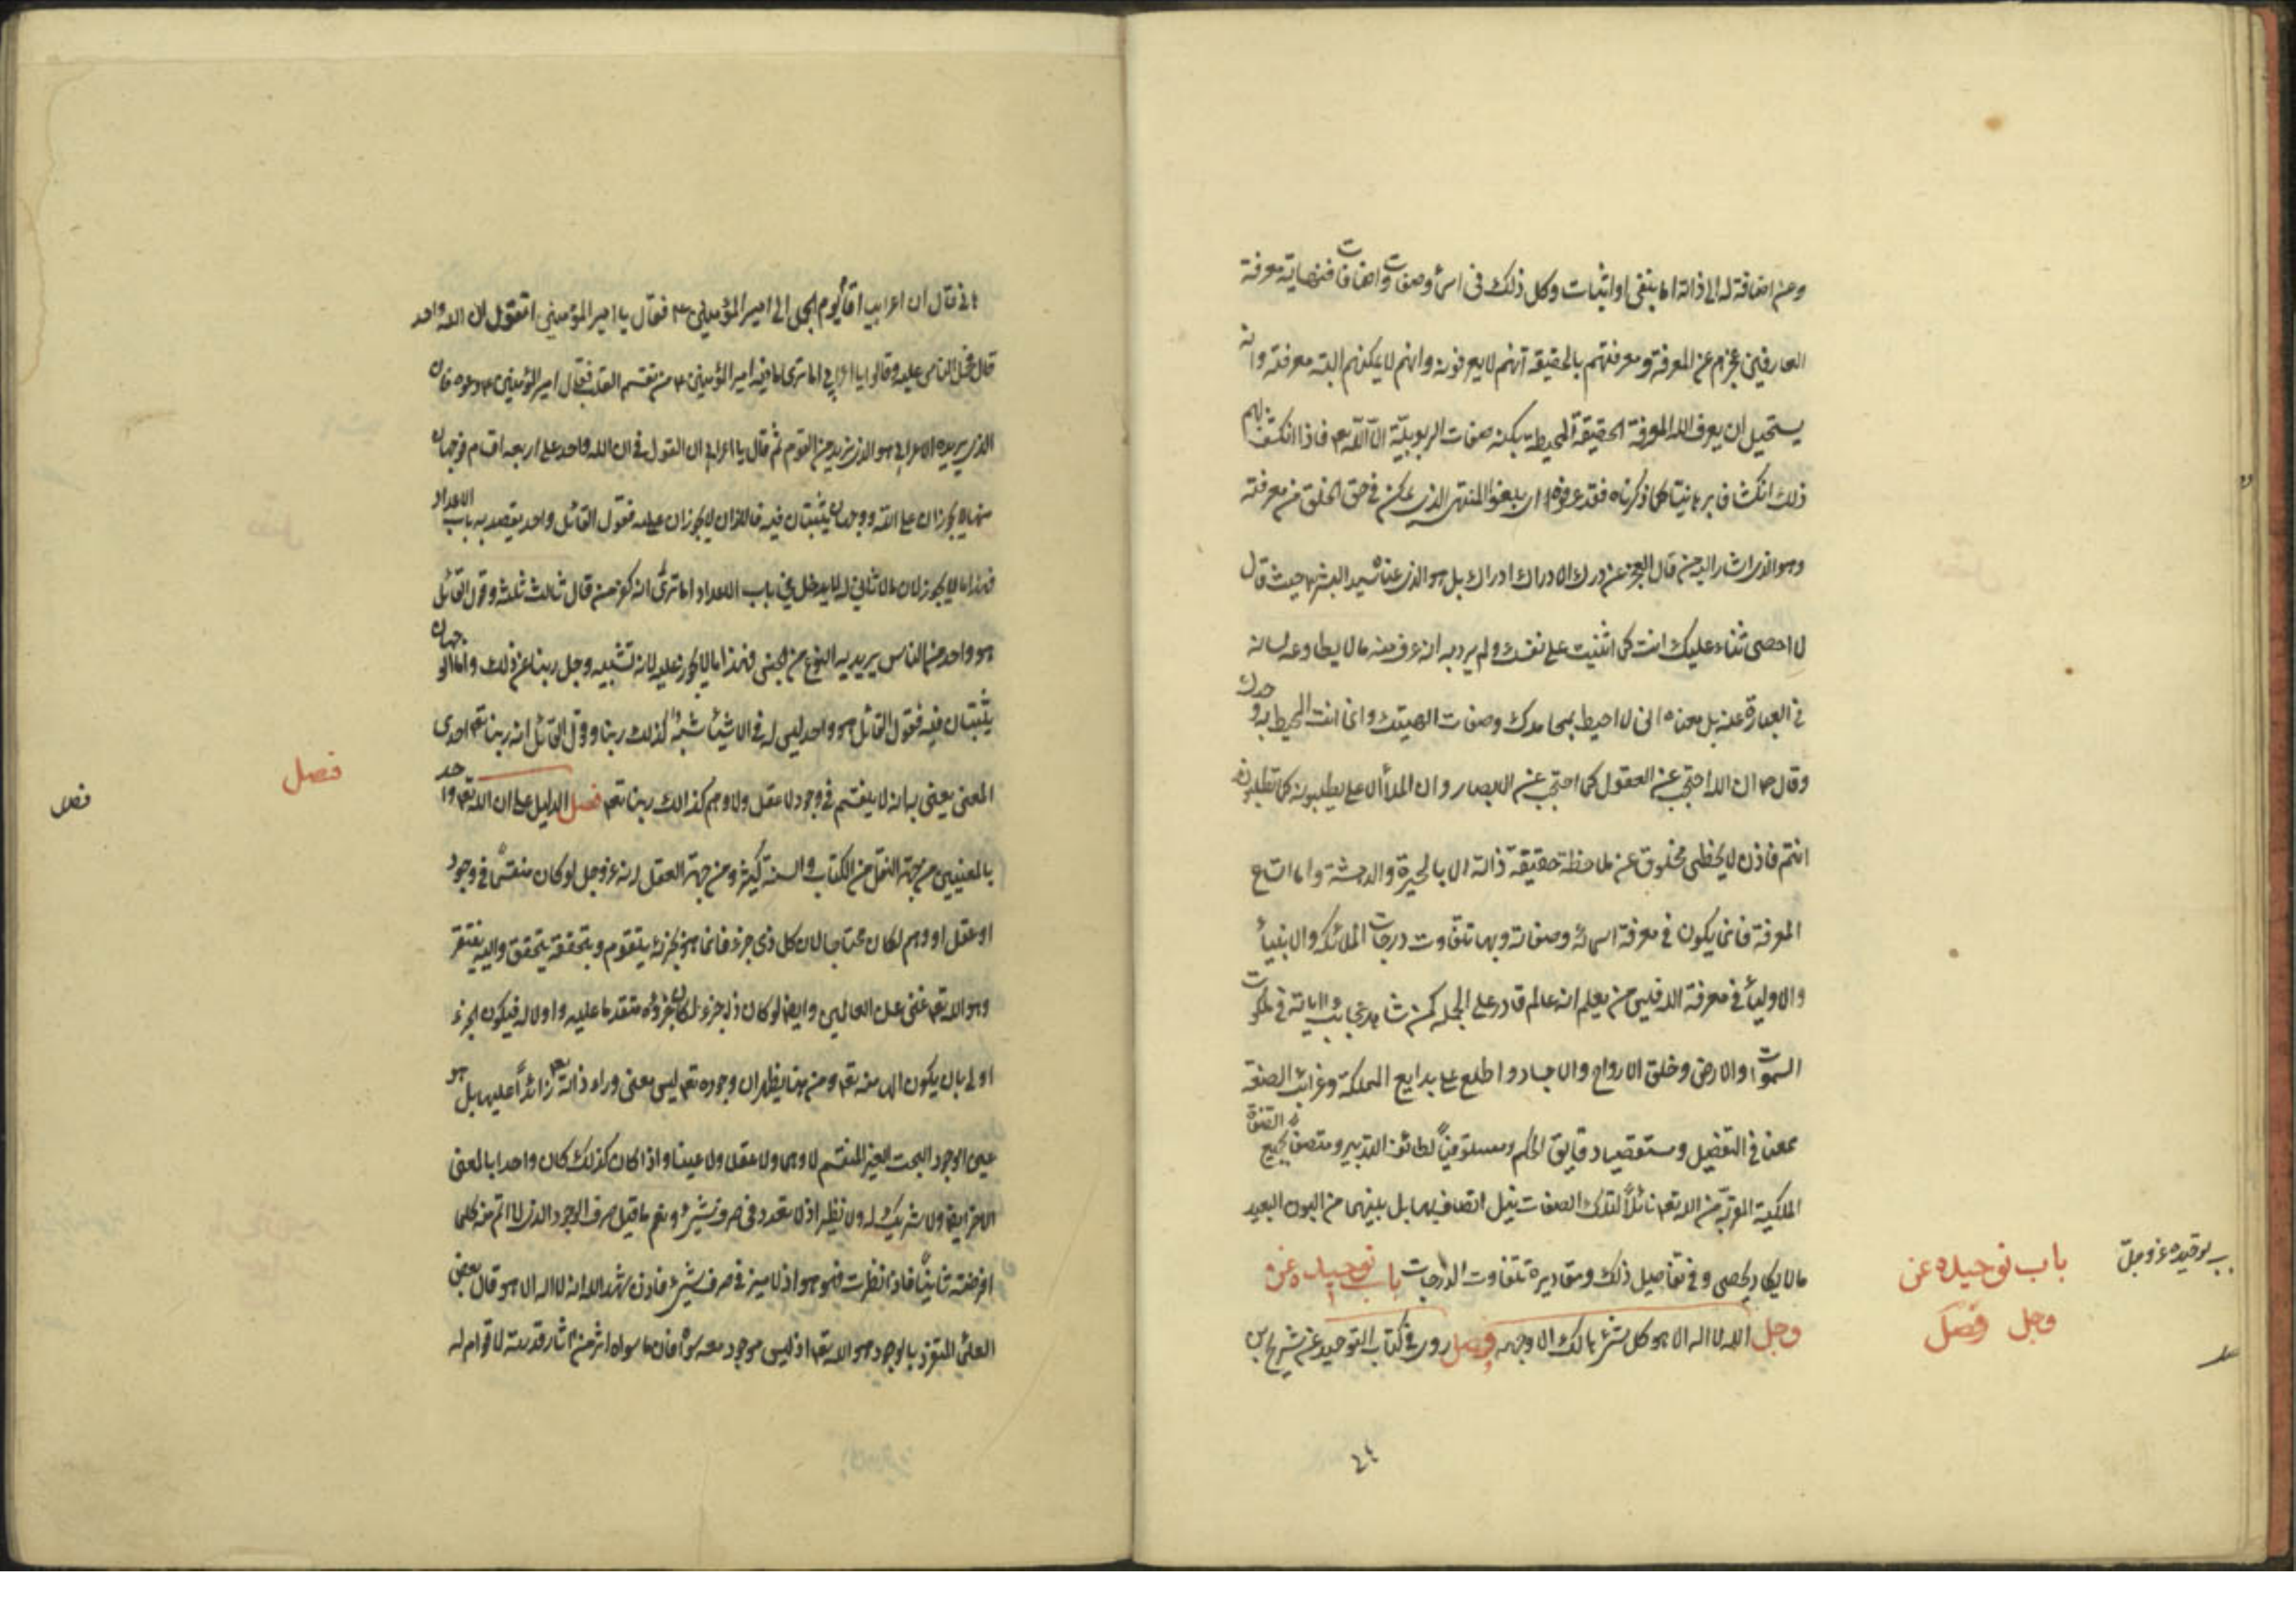 وعن اضافة له الى ذاته اما بنفى او اثبات وكل ذلك فى اسمائه وصفات واضافات فنهاية معرفة
العارفين عجزهم عن المعرفة ومعرفتهم بالحقيقة انهم لا يعرفونه وانهم لا يمكنهم البتة معرفته وانه
يستحيل ان يعرف الله المعرفة الحقيقة المحيطة بكنه صفات الربوبية الا الله تعه فاذا انكشف لهم
ذلك انكشافا برهانيا كما ذكرناه فقد عرفوه اى بلغوا المنتهى الذى يمكن فى حق الخلق من معرفته
وهو الذى اشار اليه من قال العجز عن درك الادراك ادراك بل هو الذى عناه سيد البشر حيث قال
لا احصى ثناء عليك انت كما اثنيت على نفسك ولم يرد به انه عرف منه ما لا يطاوعه لسانه
فى العبارة عنه بل معناه انى لا احيط بمحامدك وصفات الهيتك وانما انت المحيط به وحدك
وقال ص ان الله احتجب عن العقول كما احتجب عن الابصار وان الملأ الاعلى يطلبونه كما تطلبونه
انتم فاذن لا يحظى مخلوق من ملاحظة حقيقة ذاته الا بالحيرة والدهشة واما اتساع
المعرفة فانما يكون فى معرفة اسمائه وصفاته وبها تتفاوت درجات الملائكة والانبياء
والاولياء فى معرفة الله فليس من يعلم انه عالم قادر على الجملة كمن شاهد عجائب آياته فى ملكوت
السموات والارض وخلق الارواح والاجساد واطلع على بدايع المملكة وغرائب الصنعة
ممعنا فى التفصيل ومستقصيا دقايق الحكم ومستوفيا لطائف التدبير ومتصفا بجميع الصفات
الملكية المقربة من الله تعه نائلا لتلك الصفات نيل اتصاف بها بل بينهما من البون البعيد
ما لا يكاد يحصى وفى تفاصيل ذلك ومقاديره تتفاوت الدرجات باب توحيده عز
وجل الله لا اله الا هو كل شئ هالك الا وجهه فصل روى فى كتاب التوحيد عن شريح بن
باب توحيده عز
وجل فصل
باب توحيده عز وجل
٢٤
هانى قال ان اعرابيا قام يوم الجمل الى امير المؤمنين ع فقال يا امير المؤمنين اتقول ان الله واحد
قال فحمل الناس عليه وقالوا يا اعرابى اما ترى ما فيه امير المؤمنين ع من تقسم القلب فقال امير المؤمنين ع دعوه فان
الذى يريده الاعرابى هو الذى نريده من القوم ثم قال يا اعرابى ان القول فى ان الله واحد على اربعه اقسام فوجهان
منها لا يجوزان على الله ووجهان يثبتان فيه فاللذان لا يجوزان عليه فقول القائل واحد يقصد به باب الاعداد
فهذا ما لا يجوز لان ما لا ثانى له لا يدخل فى باب الاعداد اما ترى انه كفر من قال ثالث ثلثه وقول القائل
هو واحد من الناس يريد به النوع من الجنس فهذا ما لا يجوز عليه لانه تشبيه وجل ربنا عن ذلك واما الوجهان
يثبتان فيه فقول القائل هو واحد ليس له فى الاشياء شبه كذلك ربنا وقول القائل انه ربنا تعه احدى
المعنى يعنى به انه لا ينقسم فى وجود ولا عقل ولا وهم كذلك ربنا تعه فصل الدليل على ان الله تعه واحد
بالمعنيين من جهة النقل من الكتاب والسنة كثيرة ومن جهة العقل انه عز وجل لو كان منقسما فى وجود
او عقل او وهم لكان محتاجا لان كل ذى جزء فانما هو بجزئه يتقوم وبتحققه يتحقق واليه يفتقر
وهو الله تعه غنى عن العالمين وايضا لو كان ذا جزء لكان جزؤه متقدما عليه واولا له فيكون الجزء
اولى بان يكون الها منه تعه ومن هنا يظهر ان وجوده تعه ليس معنى وراء ذاته تعه زائدا عليها بل هو
عين الوجود البحت الغير المنقسم لا وهما ولا عقلا ولا عينا واذا كان كذلك كان واحدا بالمعنى
الاخر ايضا ولا شريك له ولا نظير اذ لا تعدد فى صرف شئ ونعم ما قيل صرف الوجود الذى لا اتم منه كلما
افرضته ثانيا فاذا نظرت فهو هو اذ لا ميز فى صرف شئ فاذن شهد الله انه لا اله الا هو قال بعض
العلماء المتفرد بالوجود هو الله تعه اذ ليس موجود معه سواه فان ما سواه اثر من آثار قدرته لا قوام له
فصل
فصل